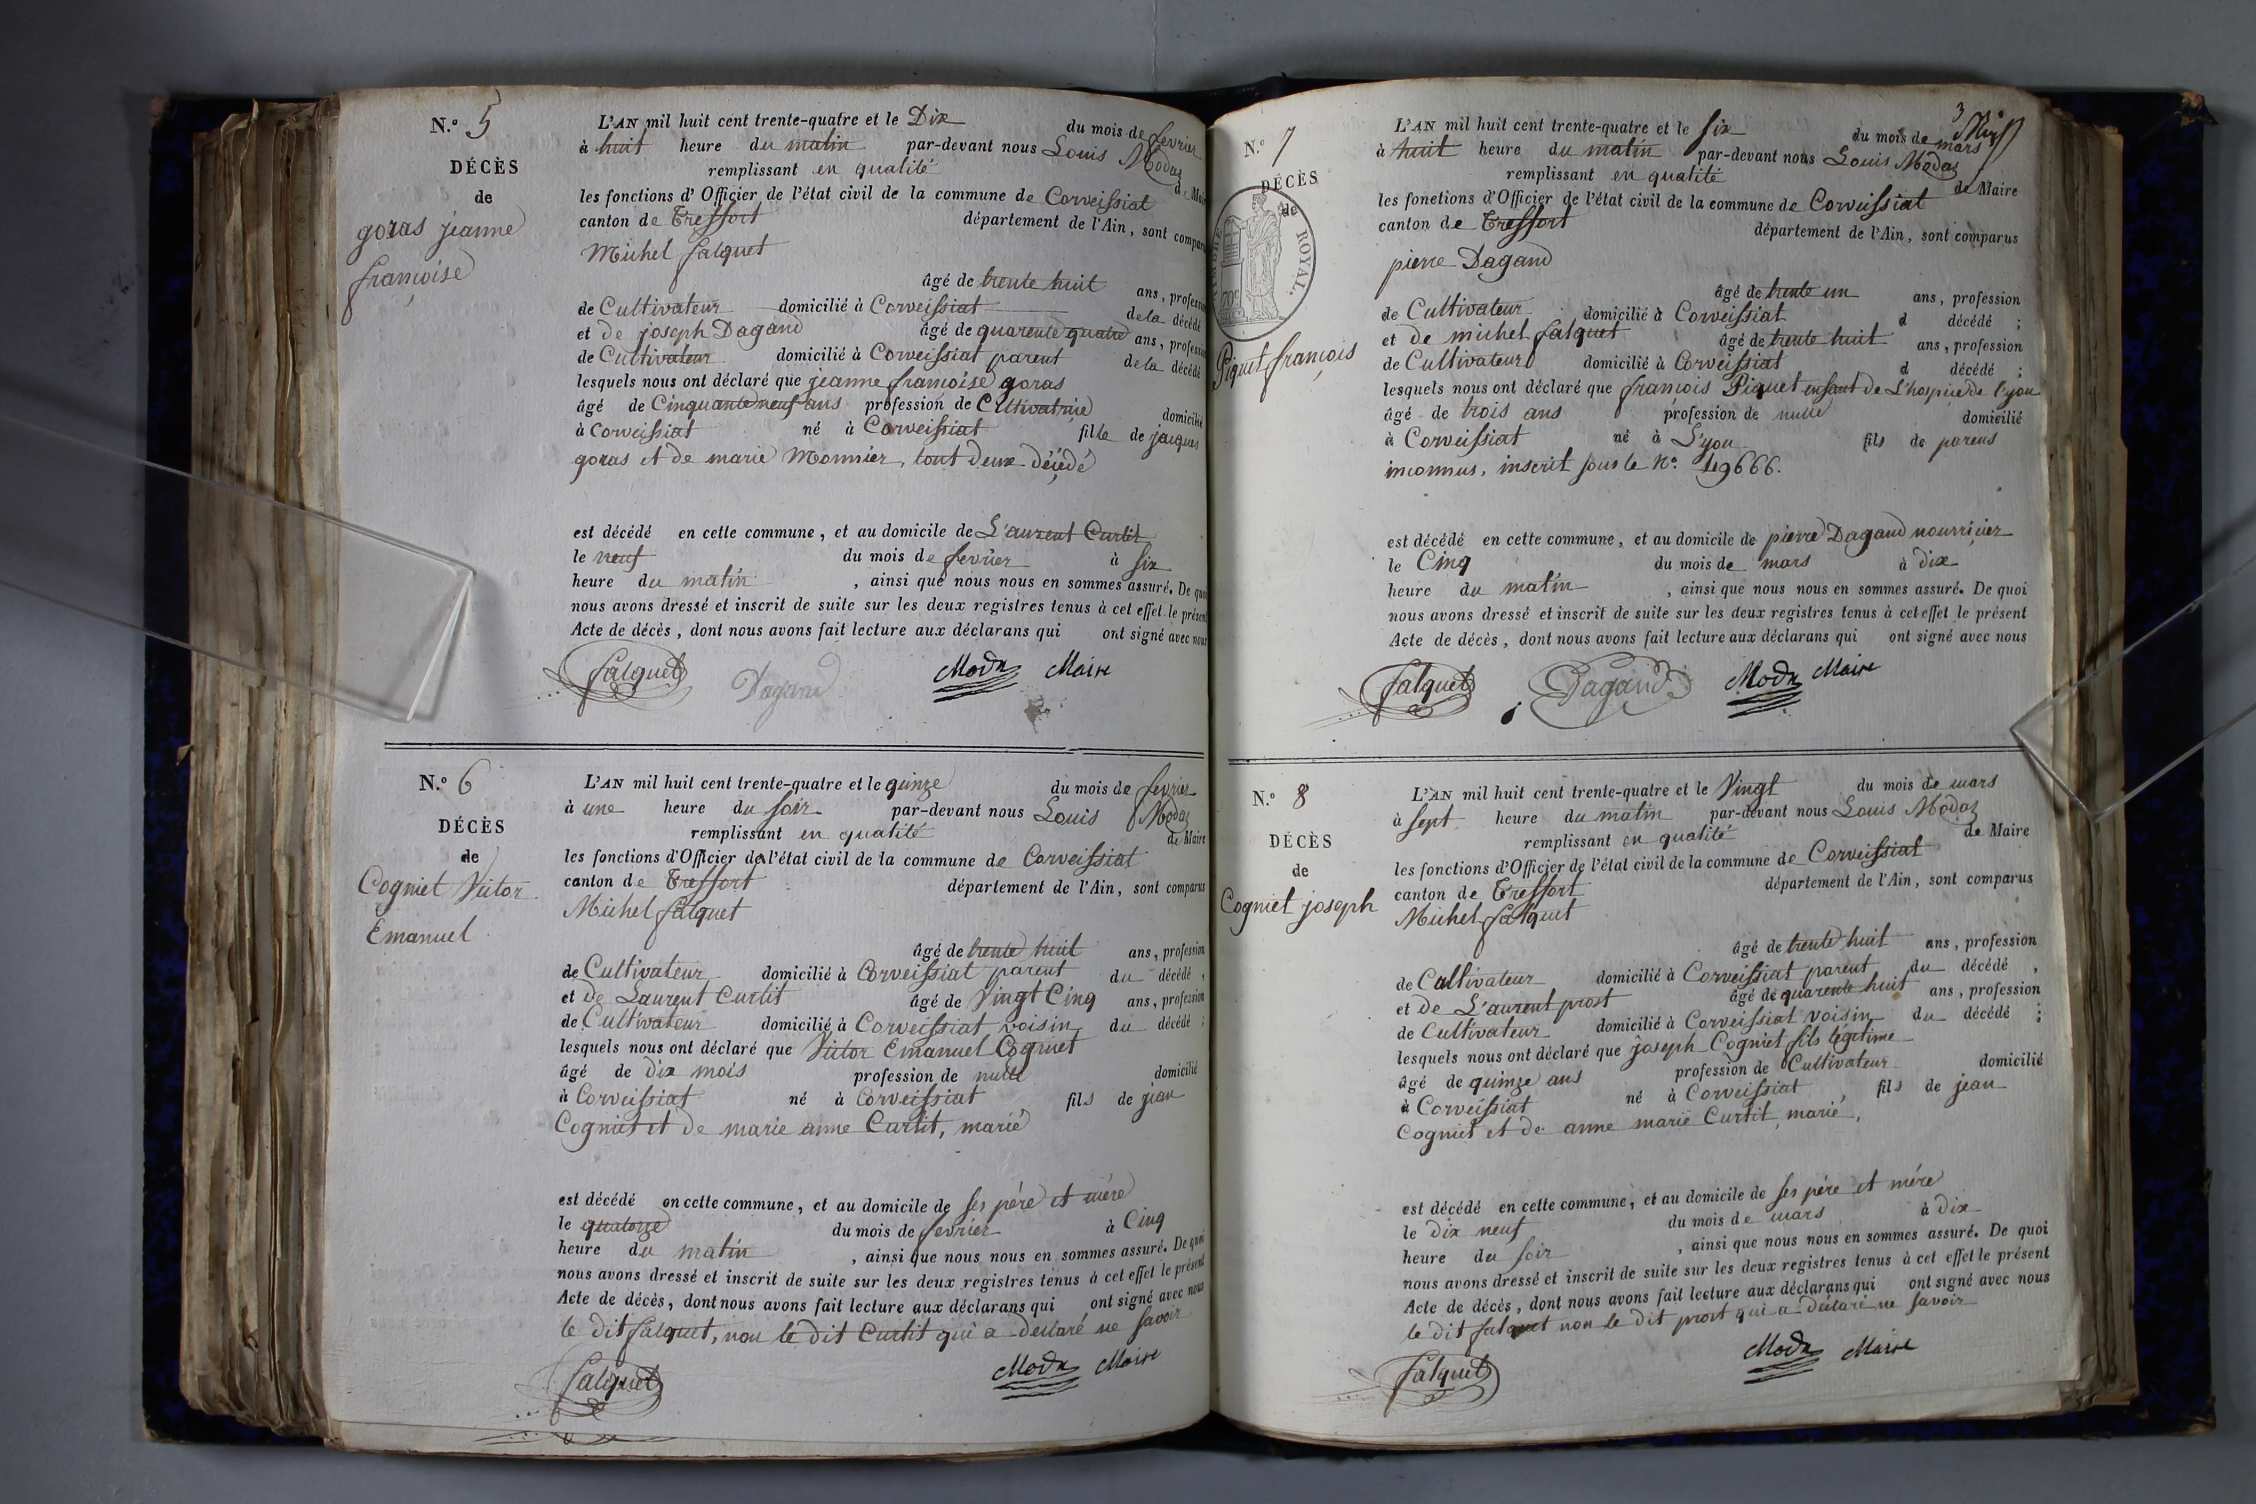 N.º 5
DÉCÈS
de
goras jeanne
françoise
L'AN mil huit cent trente-quatre et le Dix du mois de fevrier
à huit heure du matin par-devant nous Louis Modas
remplissant en qualité de Maire
les fonctions d'Officier de l'état civil de la commune de Corveissiat
canton de Treffort département de l'Ain, sont comparus
Michel falquet
âgé de trente huit ans, profession
de Cultivateur domicilié à Corveissiat de la décédé
et de joseph Dagand âgé de quarente quatre ans, profession
de Cultivateur domicilié à Corveissiat parent de la décédé
lesquels nous ont déclaré que jeanne françoise goras
âgé de Cinquante neuf ans profession de Cultivatrice domicilié
à Corveissiat né à Corveissiat fille de jacques
goras et de marie Monnier, tout deux décédé
est décédé en cette commune, et au domicile de L'aurent Curtit
le neuf du mois de fevrier à six
heure du matin, ainsi que nous nous en sommes assuré. De quoi
nous avons dressé et inscrit de suite sur les deux registres tenus à cet effet le présent
Acte de décès, dont nous avons fait lecture aux déclarans qui ont signé avec nous
falquet Dagand Modas Maire
N.º 6
DÉCÈS
de
Cogniet Victor
Emanuel
L'AN mil huit cent trente-quatre et le quinze du mois de fevrier
à une heure du soir par-devant nous Louis Modas
remplissant en qualité de Maire
les fonctions d'Officier de l'état civil de la commune de Corveissiat
canton de Treffort département de l'Ain, sont comparus
Michel falquet
âgé de trente huit ans, profession
de Cultivateur domicilié à Corveissiat parent du décédé,
et de Laurent Curtit âgé de Vingt Cinq ans, profession
de Cultivateur domicilié à Corveissiat voisin du décédé;
lesquels nous ont déclaré que Victor Emanuel Cogniet
âgé de dix mois profession de nulle domicilié
à Corveissiat né à Corveissiat fils de jean
Cogniet et de marie anne Curtit, marié
est décédé en cette commune, et au domicile de ses père et mère
le quatorze du mois de fevrier à Cinq
heure du matin, ainsi que nous nous en sommes assuré. De quoi
nous avons dressé et inscrit de suite sur les deux registres tenus à cet effet le présent
Acte de décès, dont nous avons fait lecture aux déclarans qui ont signé avec nous
le dit falquet, non le dit Curtit qui a déclaré ne savoir
falquet Modas Maire
3
N.º 7
DÉCÈS
de
TIMBRE ROYAL.
70c
Piquet françois
L'AN mil huit cent trente-quatre et le six du mois de mars
à huit heure du matin par-devant nous Louis Modas
remplissant en qualité de Maire
les fonctions d'Officier de l'état civil de la commune de Corveissiat
canton de Treffort département de l'Ain, sont comparus
pierre Dagand
âgé de trente un ans, profession
de Cultivateur domicilié à Corveissiat d décédé;
et de michel falquet âgé de trente huit ans, profession
de Cultivateur domicilié à Corveissiat d décédé;
lesquels nous ont déclaré que françois Piquet enfant de L'hospice de Lyon
âgé de trois ans profession de nulle domicilié
à Corveissiat né à L'yon fils de parens
inconnus, inscrit sous le Nº. 49666.
est décédé en cette commune, et au domicile de pierre Dagand nourricier
le Cinq du mois de mars à dix
heure du matin, ainsi que nous nous en sommes assuré. De quoi
nous avons dressé et inscrit de suite sur les deux registres tenus à cet effet le présent
Acte de décès, dont nous avons fait lecture aux déclarans qui ont signé avec nous
falquet Dagand Modas Maire
N.º 8
DÉCÈS
de
Cogniet joseph
L'AN mil huit cent trente-quatre et le Vingt du mois de mars
à sept heure du matin par-devant nous Louis Modas
remplissant en qualité de Maire
les fonctions d'Officier de l'état civil de la commune de Corveissiat
canton de Treffort département de l'Ain, sont comparus
Michel falquet
âgé de trente huit ans, profession
de Cultivateur domicilié à Corveissiat parent du décédé,
et de L'aurent prost âgé de quarente huit ans, profession
de Cultivateur domicilié à Corveissiat voisin du décédé;
lesquels nous ont déclaré que joseph Cogniet fils légitime
âgé de quinze ans profession de Cultivateur domicilié
à Corveissiat né à Corveissiat fils de jean
Cogniet et de anne marie Curtit, marié,
est décédé en cette commune, et au domicile de ses père et mère
le dix neuf du mois de mars à dix
heure du soir, ainsi que nous nous en sommes assuré. De quoi
nous avons dressé et inscrit de suite sur les deux registres tenus à cet effet le présent
Acte de décès, dont nous avons fait lecture aux déclarans qui ont signé avec nous
le dit falquet non le dit prost qui a déclaré ne savoir
falquet Modas Maire